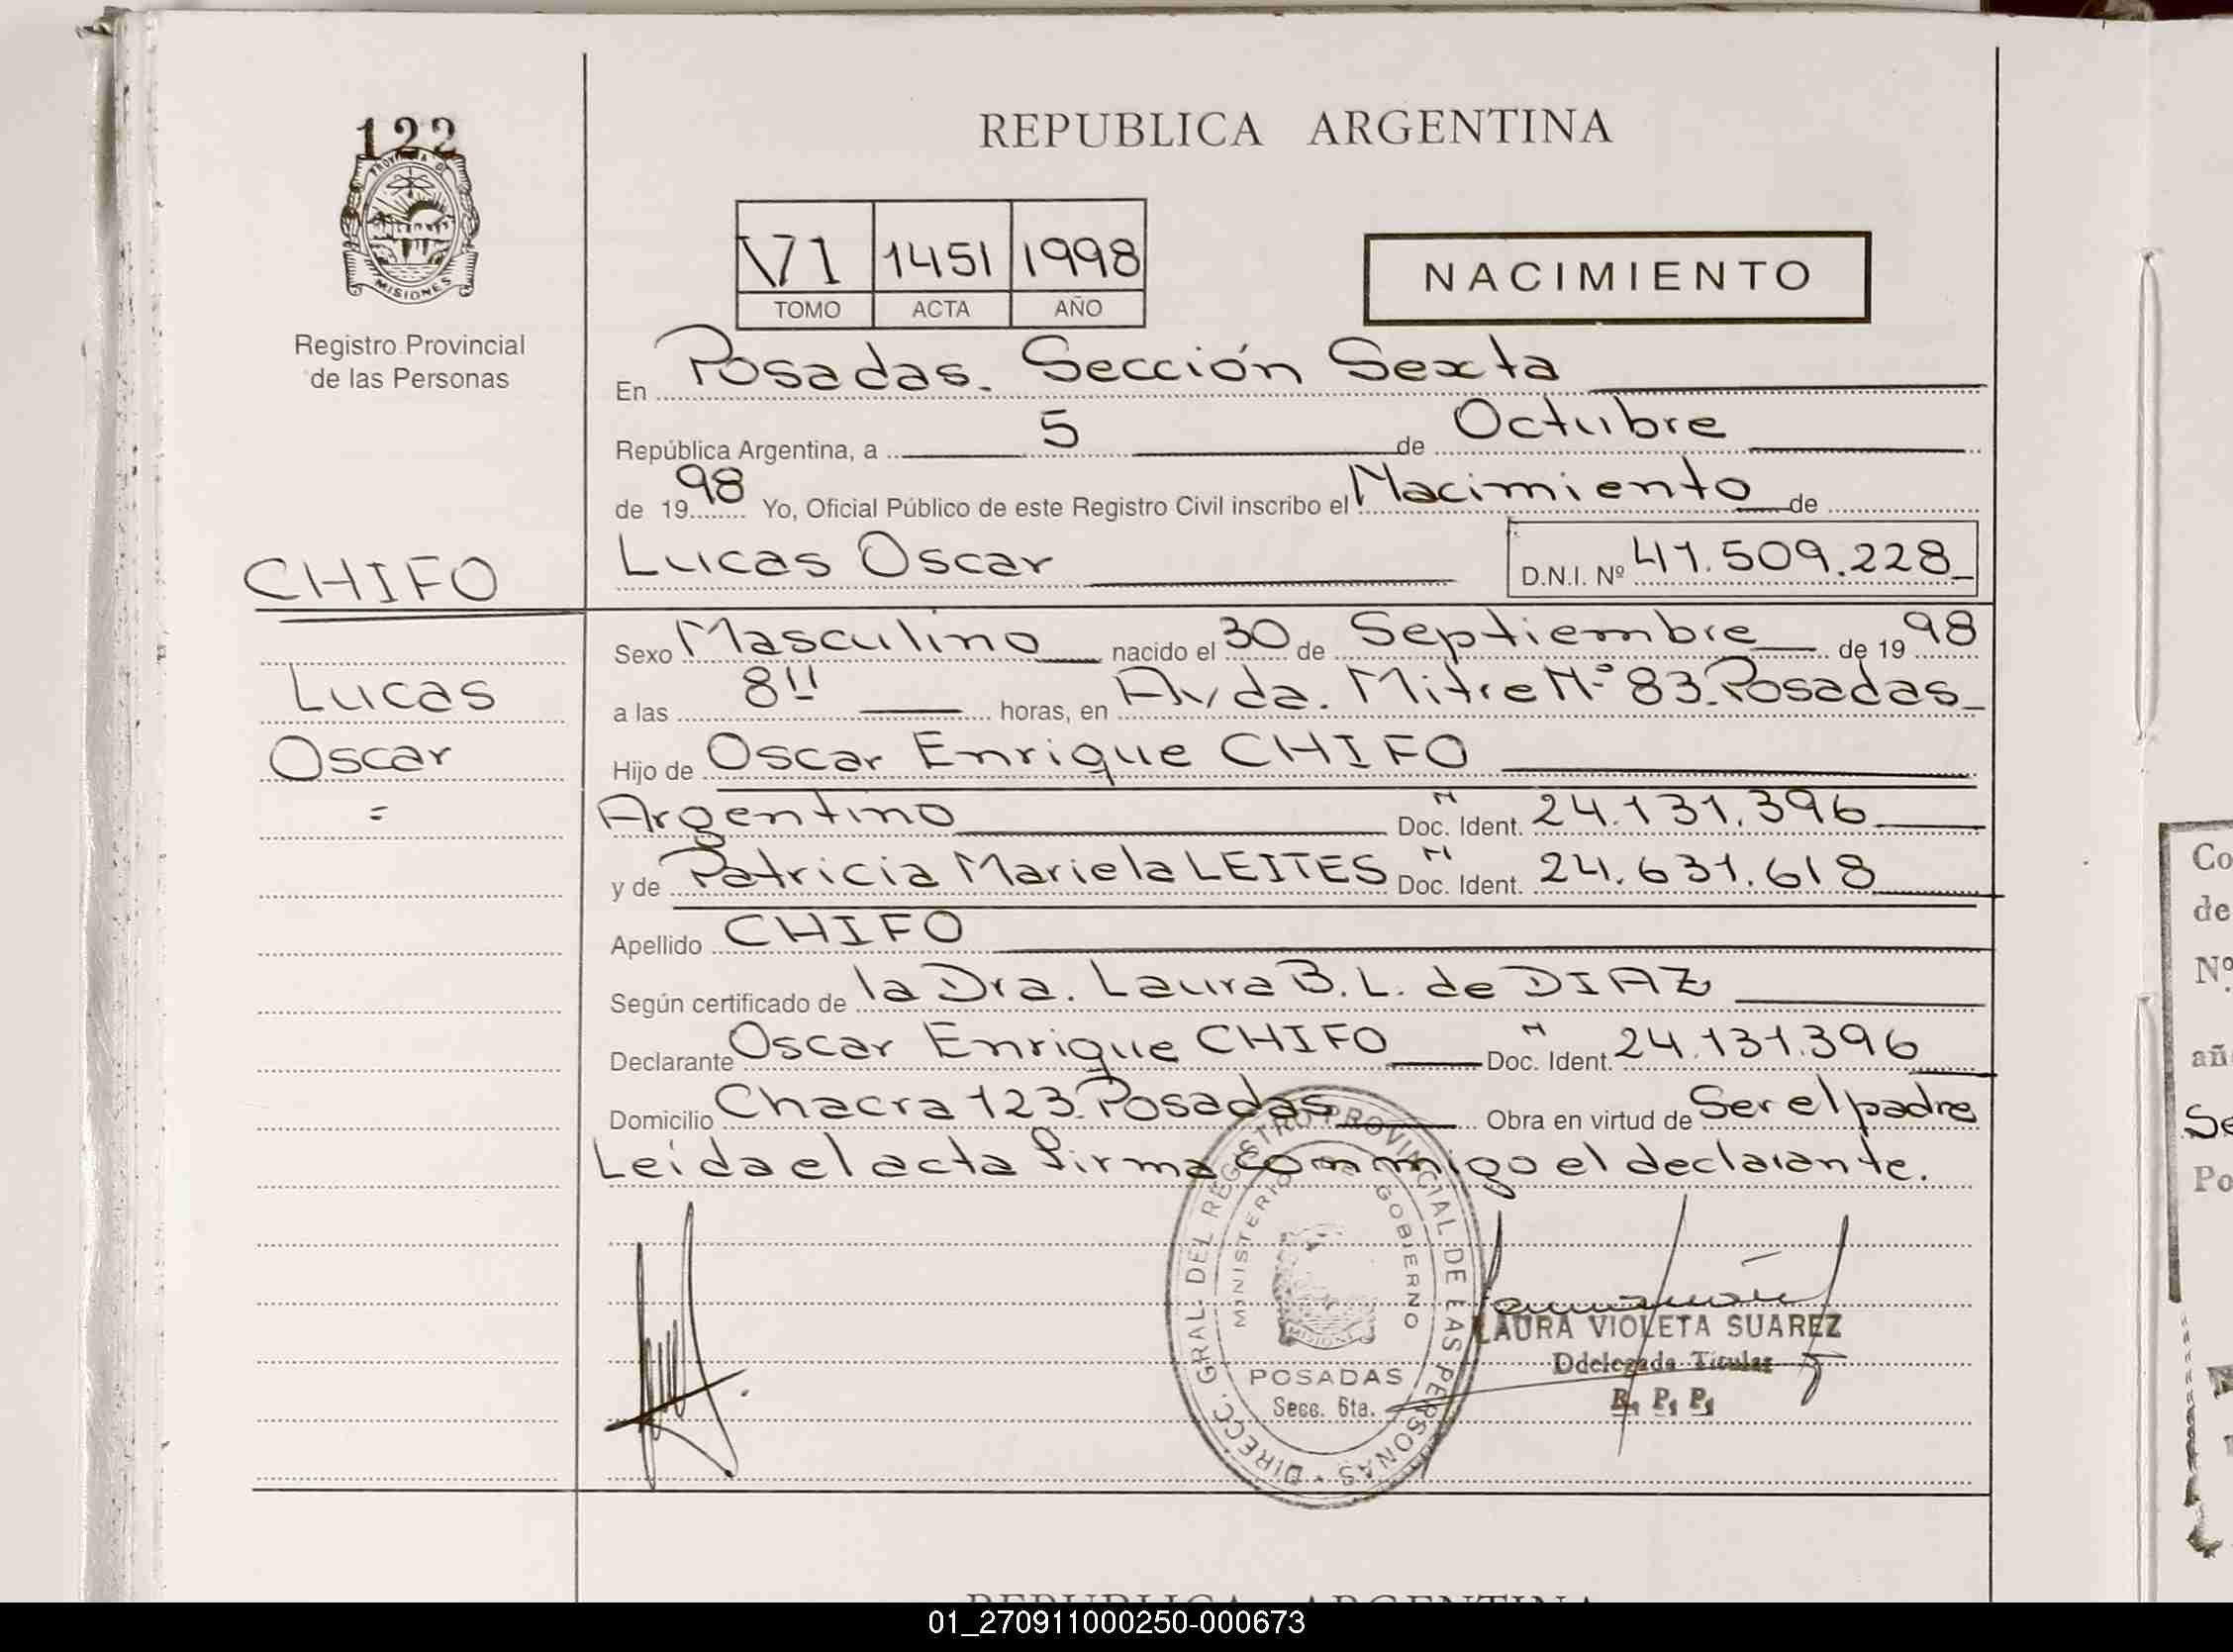 122
PROVINCIA D
MISIONES
Registro Provincial
de las Personas
REPUBLICA ARGENTINA
VI 1451 1998
TOMO ACTA AÑO
NACIMIENTO
En Posadas. Sección Sexta
República Argentina, a 5 de Octubre
de 1998 Yo, Oficial Público de este Registro Civil inscribo el Nacimiento de
CHIFO
Lucas Oscar D.N.I. Nº 41.509.228
Lucas
Oscar
=
Sexo Masculino nacido el 30 de Septiembre de 1998
a las 8 horas, en Avda. Mitre Nº 83. Posadas
Hijo de Oscar Enrique CHIFO
Argentino Doc. Ident. N 24.131.396
y de Patricia Mariela LEITES Doc. Ident. N 24.631.618
Apellido CHIFO
Según certificado de la Dra. Laura B. L. de DIAZ
Declarante Oscar Enrique CHIFO Doc. Ident. N 24.131.396
Domicilio Chacra 123. Posadas Obra en virtud de Ser el padre
Leída el acta firma conmigo el declarante.
DIRECC. GRAL DEL REGISTRO PROVINCIAL DE LAS PERSONAS
MINISTERIO GOBIERNO
MISIONES
POSADAS
Secc. 6ta.
LAURA VIOLETA SUAREZ
Ddelegada Titular
R. P. P.
Co
de
Nº
añ
Se
Po
REPUBLICA ARGENTINA
01_270911000250-000673